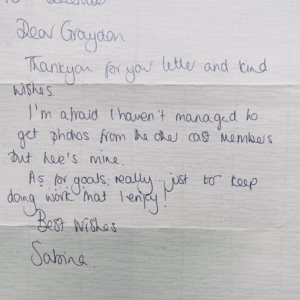 December
Dear Graydon
Thankyou for your letter and kind
wishes.
I'm afraid I haven't managed to
get photos from the other cast members
but here's mine.
As for goals; really.. just to keep
doing work that I enjoy!
Best Wishes
Sabina.